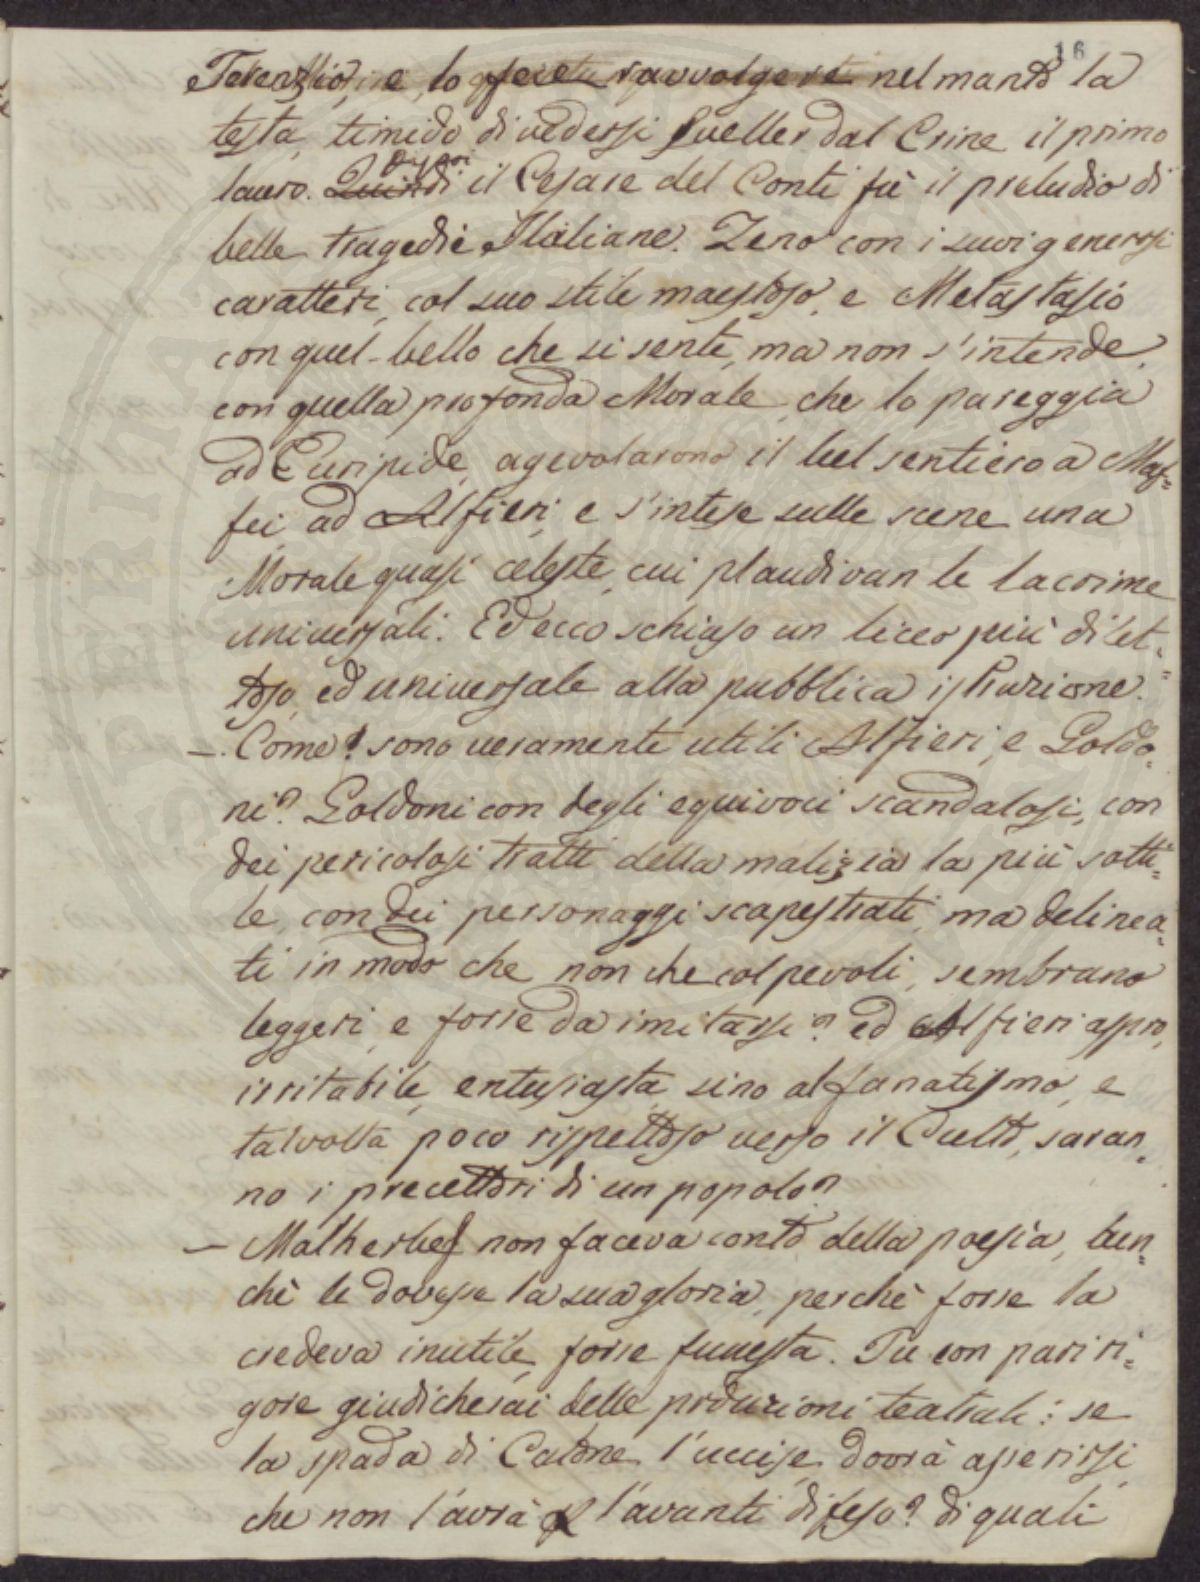 16
Terenzio, e lo fece ravvolgere nel manto la
testa, timido di vedersi sveller dal Crine il primo
lauro. Quindi Dipoi il Cesare del Conti fù il preludio di
belle tragedie Italiane. Zeno con i suoi generosi
caratteri, col suo stile maestoso, e Metastasio
con quel-bello che si sente, ma non s'intende,
con quella profonda Morale, che lo pareggia
ad Euripide, agevolarono il bel sentiero a Maf-
fei, ad Alfieri, e s'intese sulle scene una
Morale quasi celeste, cui plaudivan le lacrime
universali. Ed ecco schiuso un liceo più dilet-
toso, ed universale alla pubblica istruzione.
— Come! sono veramente utili Alfieri, e Goldo-
ni? Goldoni con degli equivoci scandalosi, con
dei pericolosi tratti della malizia la più sotti-
le, con dei personaggi scapestrati, ma delinea-
ti in modo che non che colpevoli, sembrano
leggeri, e forse da imitarsi? ed Alfieri aspro,
irritabile, entusiasta sino al fanatismo, e
talvolta poco rispettoso verso il Culto, saran-
no i precettori di un popolo?
— Malherbes non faceva conto della poesia, ben-
chè le dovesse la sua gloria, perchè forse la
credeva inutile, forse funesta. Tu con pari ri-
gore giudicherai delle produzioni teatrali: se
la spada di Catone l'uccise, dovrà asserirsi,
che non l'avrà l'avanti difeso? di quali